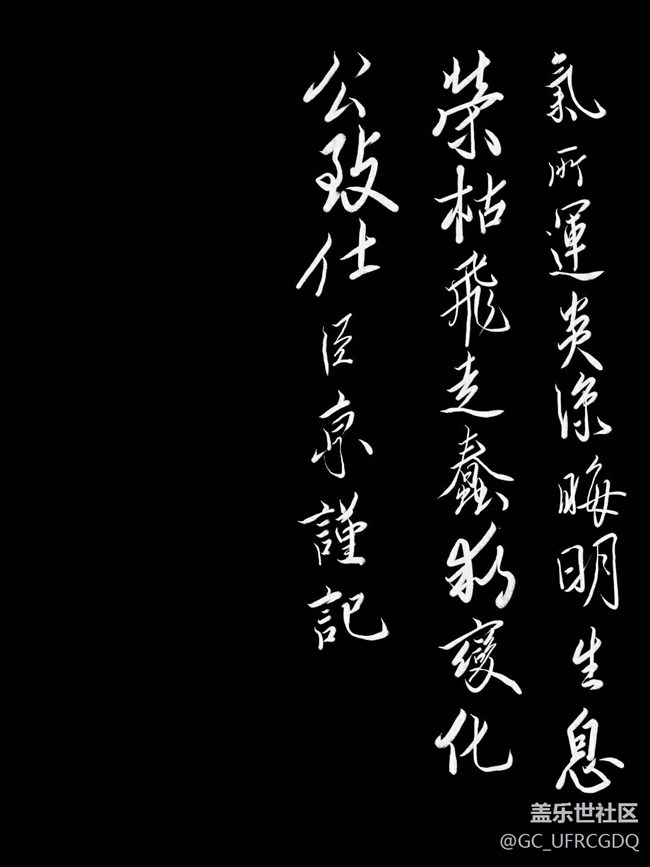 氣所運炎涼晦明生息
榮枯飛走蠢動變化
公致仕臣京謹記
盖乐世社区
@GC_UFRCGDQ